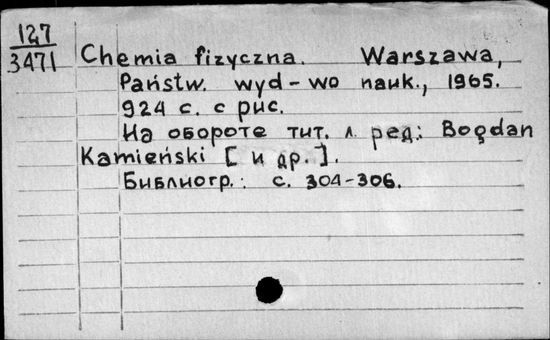 127
3471
Chemia fizyczna. Warszawa,
Państw. wyd-wo nauk., 1965.
924 с. с рис.
На обороте тит. л. ред.: Bogdan
Kamieński [и др.].
Библиогр.: с. 304-306.